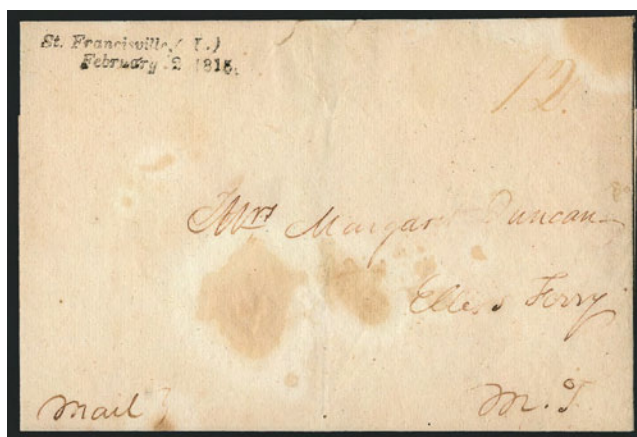 St. Francisville, (L.)
February 2 1815.
12.
Mrs Margart Duncan
Ellis's Ferry
M. T
Mail